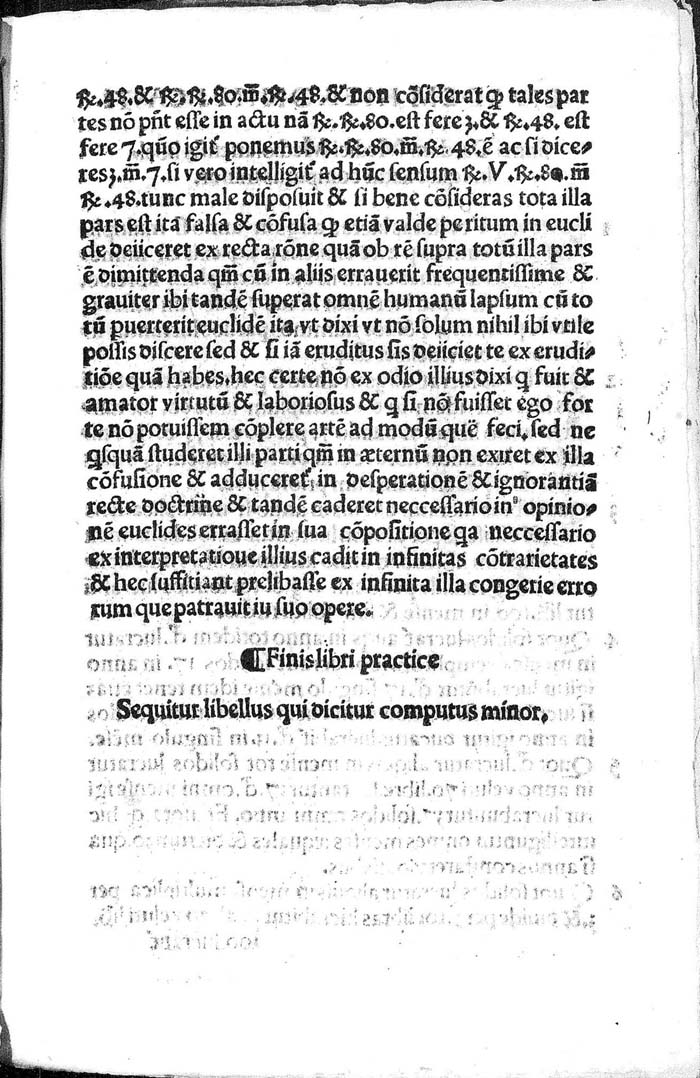 ℞.48.& ℞.℞.80.m̃.℞.48.& non cõsiderat ꝙ tales par
tes nõ pñt esse in actu nã ℞.℞.80.est fere 3.& ℞.48. est
fere 7.qũo igit̃ ponemus ℞.℞.80.m̃.℞.48.ẽ ac si dice⸗
res 3.m̃.7.si vero intelligit̃ ad hũc sensum ℞.V.℞.80.m̃
℞.48.tunc male disposuit & si bene cõsideras tota illa
pars est itã falsa & cõfusa ꝙ etiã valde peritum in eucli
de deiiceret ex recta rõne quã ob rẽ supra totũ illa pars
ẽ dimittenda qm̃ cũ in aliis errauerit frequentissime &
grauiter ibi tandẽ superat omnẽ humanũ lapsum cũ to
tũ puerterit euclidẽ ita vt dixi vt nõ solum nihil ibi vtile
possis discere sed & si iã eruditus sis deiiciet te ex erudi⸗
tiõe quã habes.hec certe nõ ex odio illius dixi q fuit &
amator virtutũ & laboriosus & q si nõ fuisset ego for
te nõ potuissem cõplere artẽ ad modũ quẽ feci. sed ne
qsquã studeret illi parti qm̃ in æternũ non exiret ex illa
cõfusione & adduceret̃ in desperationẽ & ignorantiã
recte doctrine & tandẽ caderet neccessario in opinio⸗
nẽ euclides errasset in sua cõpositione qa neccessario
ex interpretatioue illius cadit in infinitas cõtrarietates
& hec suffitiant prelibasse ex infinita illa congerie erro
rum que patrauit iu suo opere.
¶Finis libri practice
Sequitur libellus qui dicitur computus minor.